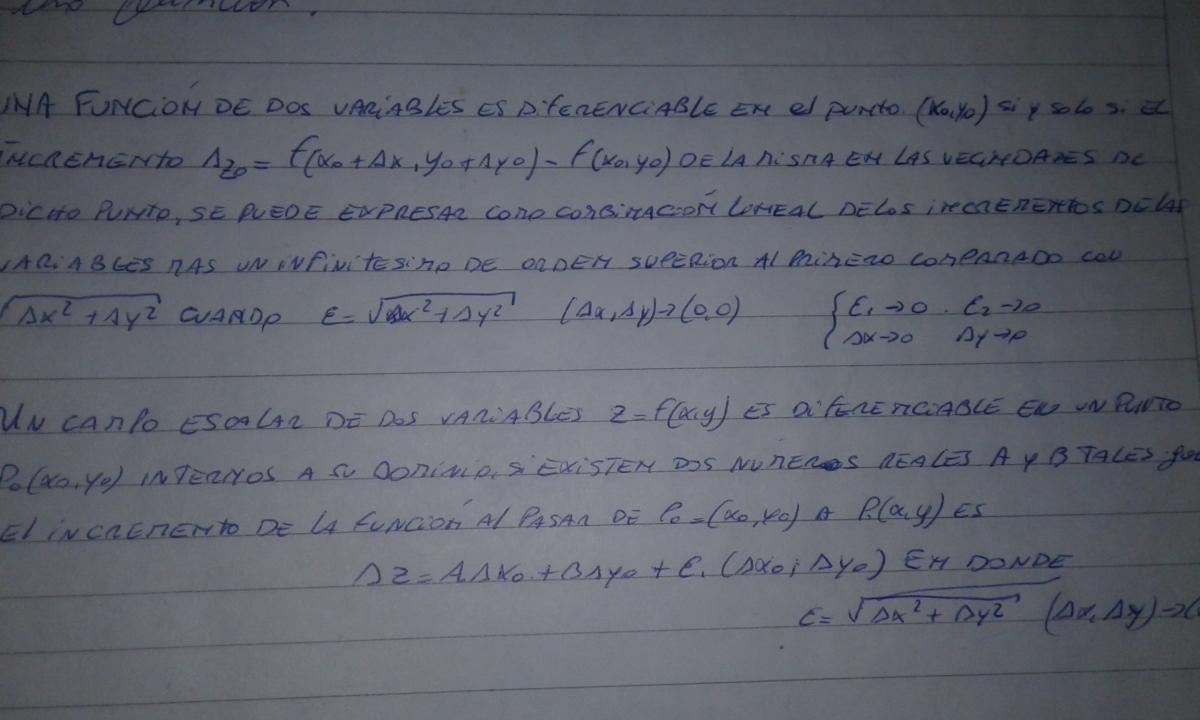 función.
UNA FUNCIÓN DE DOS VARIABLES ES DIFERENCIABLE EN el punto. (x₀,y₀) si y solo si EL
INCREMENTO Δz₀ = f(x₀+Δx, y₀+Δy₀) - f(x₀,y₀) DE LA MISMA EN LAS VECINDADES DE
DICHO PUNTO, SE PUEDE EXPRESAR COMO COMBINACIÓN LINEAL DE LOS INCREMENTOS DE LAS
VARIABLES MAS UN INFINITESIMO DE ORDEN SUPERIOR AL PRIMERO COMPARADO CON
√Δx²+Δy² CUANDO ε=√Δx²+Δy² (Δx,Δy)→(0,0) { ε₁→0 . ε₂→0
Δx→0 Δy→0
UN CAMPO ESCALAR DE DOS VARIABLES z=f(x,y) ES DIFERENCIABLE EN UN PUNTO
P₀(x₀,y₀) INTERNOS A SU DOMINIO, SI EXISTEN DOS NUMEROS REALES A y B TALES que
EL INCREMENTO DE LA FUNCIÓN AL PASAR DE P₀=(x₀,y₀) A P.(x,y) ES
Δz=AΔx₀+BΔy₀+ε.(Δx₀;Δy₀) EN DONDE
ε=√Δx²+Δy² (Δx,Δy)→(